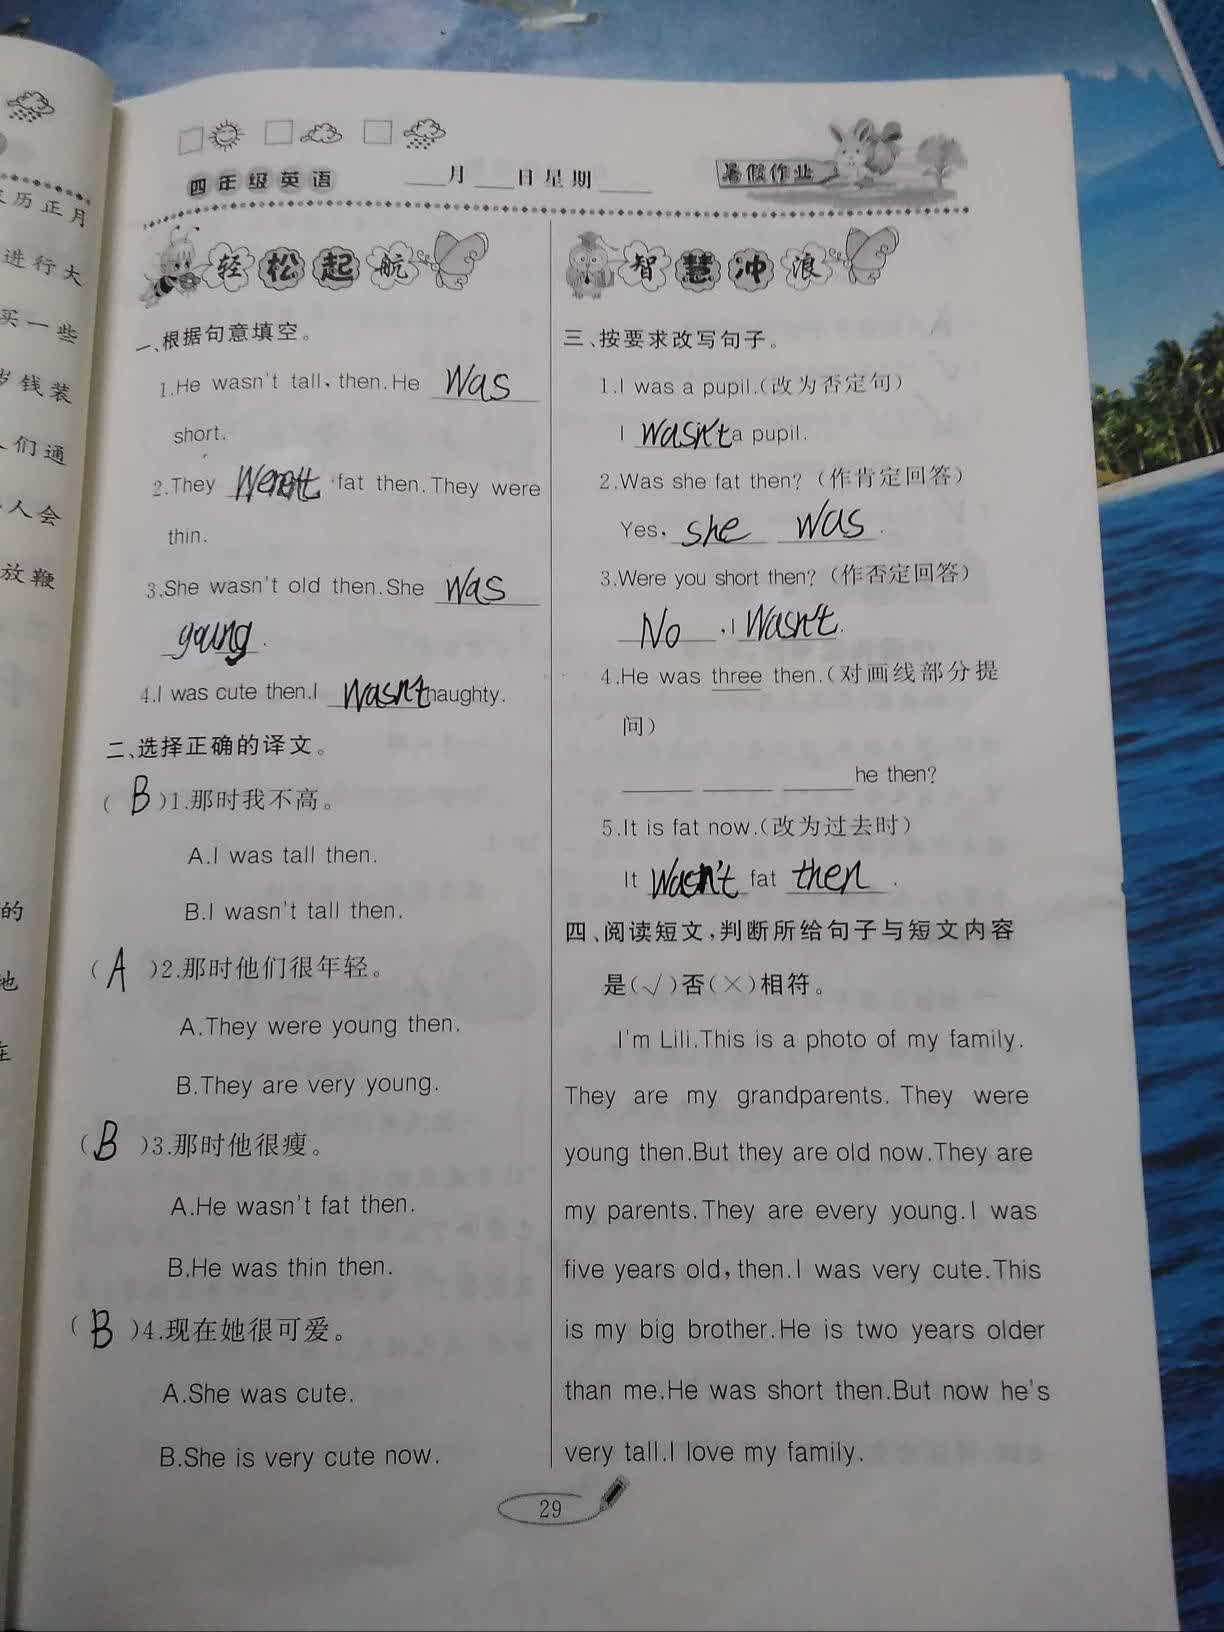 四年级英语 ___月___日星期___ 暑假作业
轻松起航
一、根据句意填空。
1.He wasn't tall, then.He was
short.
2.They weren't fat then.They were
thin.
3.She wasn't old then.She was
young.
4.I was cute then.I wasn't naughty.
二、选择正确的译文。
( B )1.那时我不高。
A.I was tall then.
B.I wasn't tall then.
( A )2.那时他们很年轻。
A.They were young then.
B.They are very young.
( B )3.那时他很瘦。
A.He wasn't fat then.
B.He was thin then.
( B )4.现在她很可爱。
A.She was cute.
B.She is very cute now.
智慧冲浪
三、按要求改写句子。
1.I was a pupil.(改为否定句)
I wasn't a pupil.
2.Was she fat then? (作肯定回答)
Yes, she was.
3.Were you short then? (作否定回答)
No, I wasn't.
4.He was three then.(对画线部分提
问)
___ ___ ___ he then?
5.It is fat now.(改为过去时)
It wasn't fat then.
四、阅读短文,判断所给句子与短文内容
是(√)否(×)相符。
I'm Lili.This is a photo of my family.
They are my grandparents. They were
young then.But they are old now.They are
my parents.They are every young.I was
five years old, then.I was very cute.This
is my big brother.He is two years older
than me.He was short then.But now he's
very tall.I love my family.
29
历正月
进行大
买一些
岁钱装
人们通
人会
放鞭
的
地
在